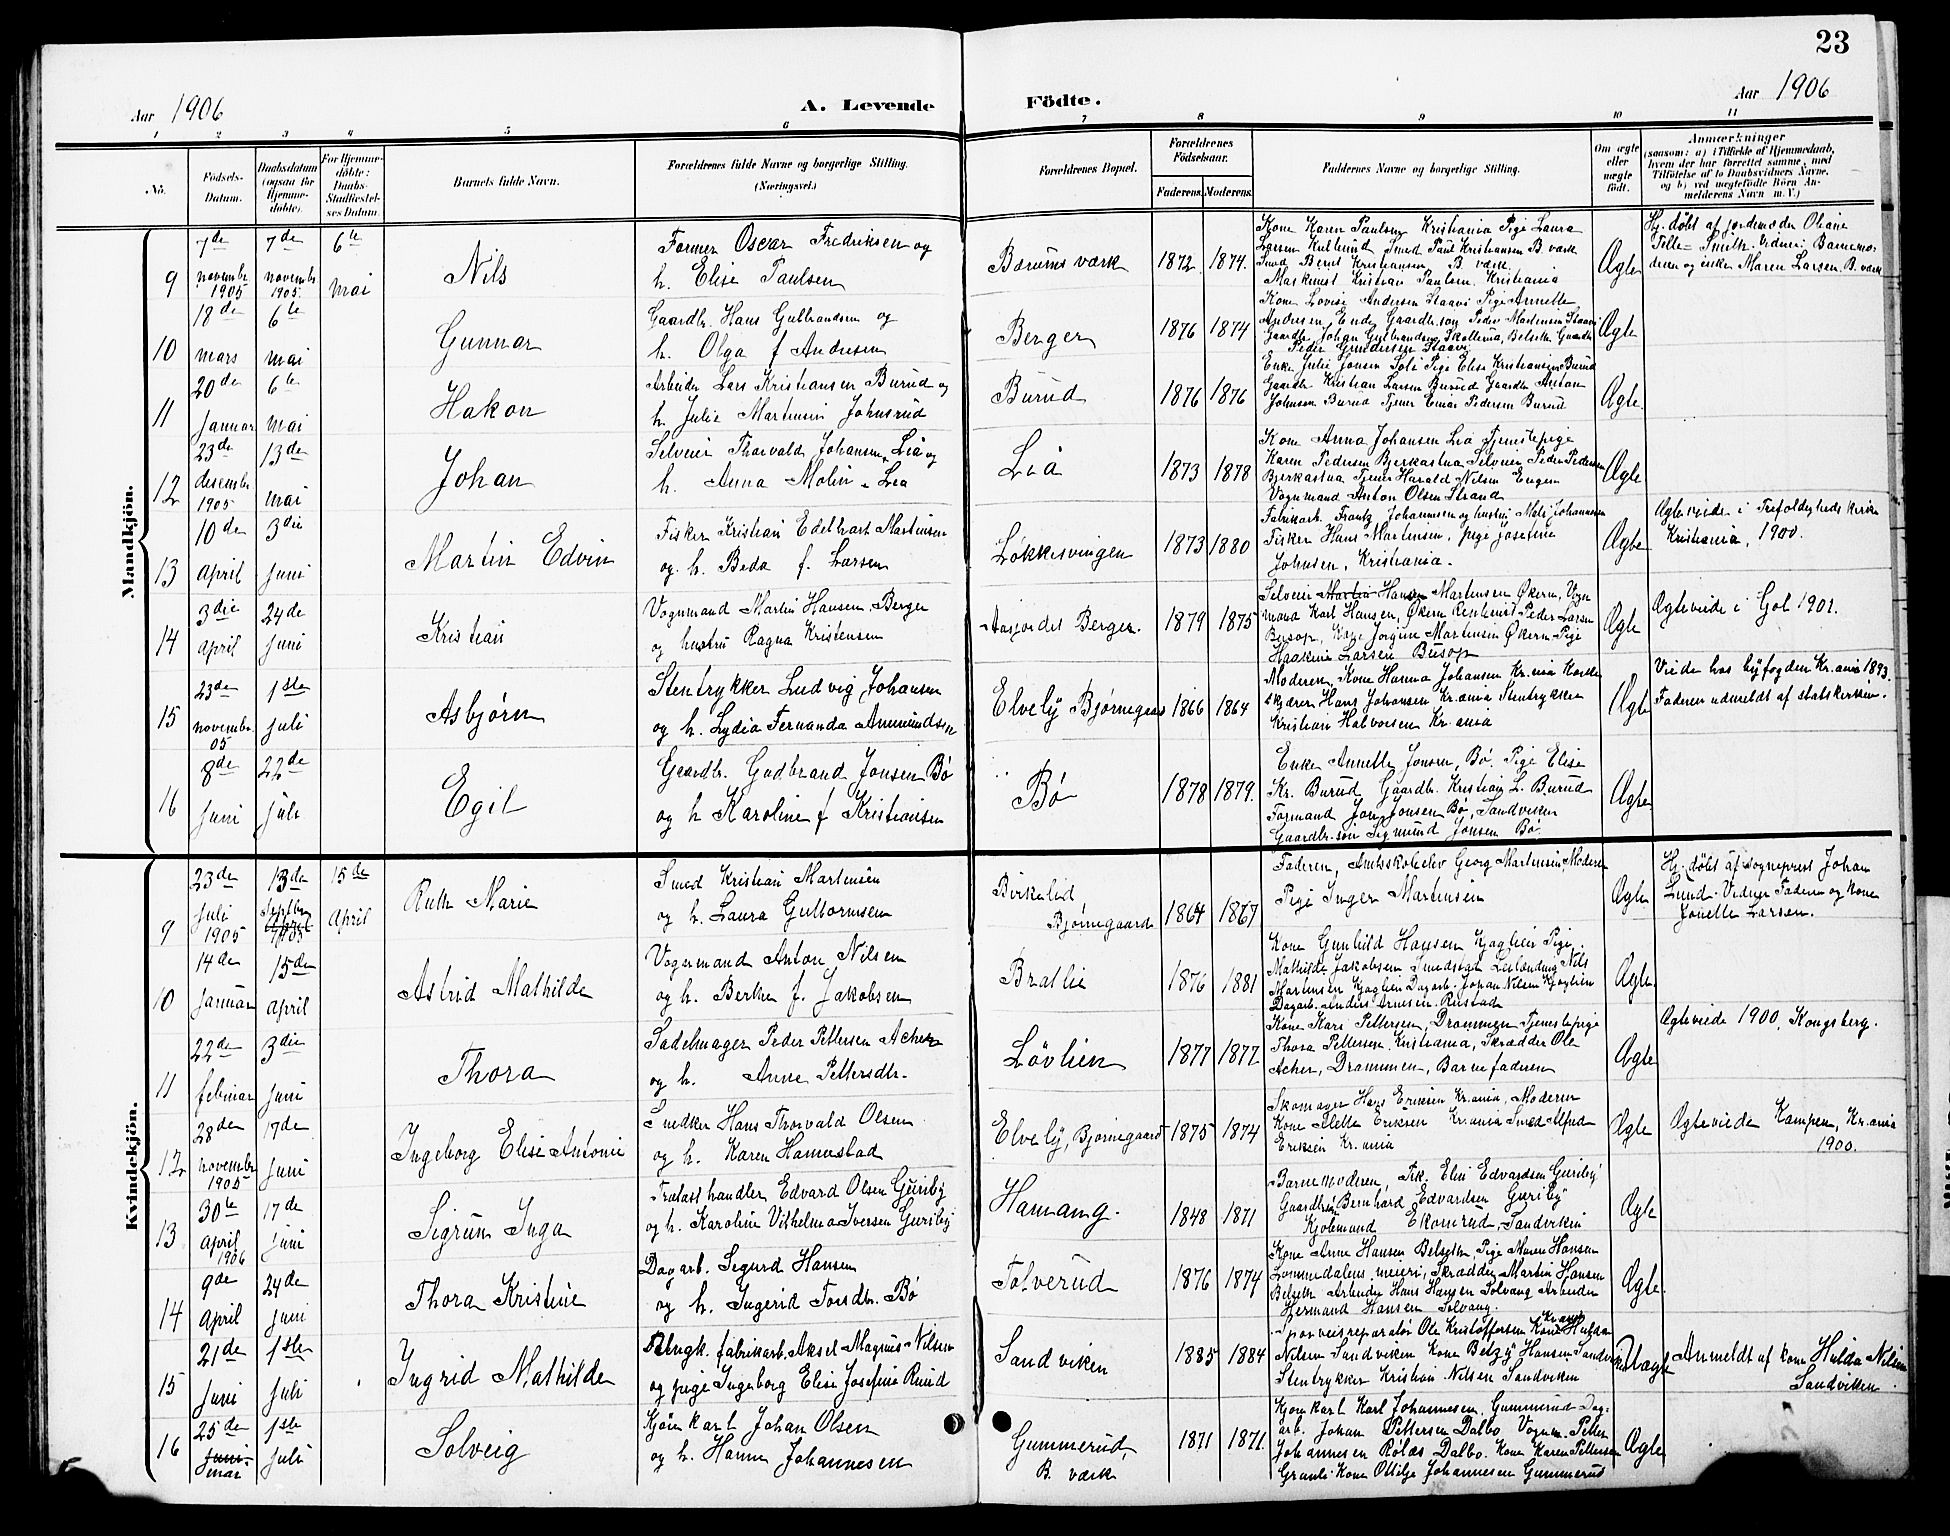 23
Aar 1906 A. Levende Födte. Aar 1906
1 2 3 4 5 6 7 8 9 10 11
No. Födsels-Datum. Daabsdatum (ogsaa for Hjemme-döbte). For Hjemme-döbte: Daabs-Stadfæstel-ses Datum. Barnets fulde Navn. Forældrenes fulde Navne og borgerlige Stilling. (Næringsvei.) Forældrenes Bopæl. Forældrenes Födselsaar. Faderens. Moderens. Faddernes Navne og borgerlige Stilling. Om ægte eller uægte födt. Anmærkninger (saasom: a) i Tilfælde af Hjemmedaab, hvem der har forrettet samme, med Tilföielse af to Daabsvidners Navne, og b) ved uægtefödte Börn An-melderens Navn m. V.)
Mandkjön.
9 7de november 1905 7de november 1905 6te mai Nils
Former Oscar Fredriksen og
h. Elise Paulsen
Bærums værk 1872 1874.
Kone Karen Paulsen Kristiania Pige Laura
Larsen Smed Paul Kristiansen B. værk
Smed Bernt Kristiansen B. værk
Maskinist Kristian Paulsen Kristiania
Ægte
Hj. døbt af jordmoder Oliane
Vidner: Barnemo-
deren og enke Maren Larsen. B. værk
10 18de mars 6te mai Gunnar
Gaardbr. Hans Gulbrandsen og
h. Olga f Andresen
Berger 1876 1874
Kone Lovise Andersen Staavi Pige Annette
Andresen, Gaardbr.søn Peder Martinsen Staavi
Gaardbr. Johan Gulbrandsen Belseth Gaardbr
Peder Gundersen Staavi
Ægte
11 20de Januar 6te mai Hakon
Arbeider Lars Kristiansen Burud og
h. Julie Martinsen Johnsrud
Burud 1876 1876
Enke Julie Jonsen Pige Elise Kristiansen Burud
Gaardbr Kristian Larsen Burud Gaardbr Anton
Johnsen Burud Tjener Einar Pedersen Burud
Ægte.
12 23de desember 1905 13de mai Johan
Selveier Thorvald Johansen Lia og
h. Anna Molin Lia
Lia 1873 1878
Kone Anna Johansen Lia Tjenestepige
Karen Pedersen Bjerkastua Selveier Peder Pedersen
Bjerkastua Tjener Harald Nilsen Engen
Vognmand Anton Olsen Strand
Ægte
13 10de april 3die juni Martin Edvin
Fisker Kristian Edelhart Martinsen
og h. Beda f. Larsen
Løkkesvingen 1873 1880
Fabrikarb. Frantz Johannesen og hustru Johannesen
Fisker Hans Martinsen, pige Josefine
Johnsen, Kristiania.
Ægte
Ægteviede i Trefoldigheds kirke
Kristiania, 1900.
14 3die april 24de juni Kristian
Vognmand Martin Hansen Berger
og hustru Ragna Kristensen
Berger. 1879 1875
Selveier Martin Hansen Martinsen Økern, Vogn
mand Karl Hansen, Økern Peder Larsen
Busop, Kone Jørgine Martinsen Økern Pige
Larsen Busop
Ægte
Ægteviede i Gol 1901.
15 23de november 05 1ste juli Asbjørn
Stentrykker Ludvig Johansen
og h. Lydia Fernanda Ammundsen
Elvely Bjørnegaard 1866 1864
Moderen, Kone Hanna Johansen Kr.ania
Hans Johansen Kr.ania Stentrykker
Kristian Halvorsen Kr.ania
Ægte
Viede hos byfogden Kr.ania 1893.
Faderen udmeldt af statskirken.
16 8de juni 22de juli Egil
Gaardbr. Gudbrand Jonsen Bø
og h Karoline f Kristiansen
Bø 1878 1879.
Enke Annette Jonsen, Bø. Pige Elise
Kr. Burud Gaardbr. Kristian L. Burud
Formand Jon Jonsen Bø, Sandviken
Gaardbr.søn Sigmund Jonsen Bø.
Ægte
Kvindekjön.
9 23de juli 1905 13de Septbr 1905 15de April Ruth Marie
Smed Kristian Martinsen
og h. Laura Guttormsen
Birkelid
Bjørnegaard 1864 1867
Faderen, Amtsskoleelev Georg Martinsen, Moderen
Pige Inger Martinsen
Ægte
Hj. døbt af sogneprest Johan
Lund. Vidner Faderen og kone
Larsen.
10 14de januar 15de april Astrid Mathilde
Vognmand Anton Nilsen
og h. Berthe f. Jakobsen
Bratlie 1876 1881
Kone Gunhild Hansen Kjaglien Pige
Mathilde Jakobsen Leilænding Nils
Martinsen Kjaglien Dagarb. Johan Nilsen Kjaglien
Dagarb. Anders Arnesen Rustad
Ægte.
11 22de februar 3die juni Thora
Sadelmager Peder Pettersen Acher
og h. Anne Pettersdtr.
Løvlien 1877 1877
Kone Kari Pettersen, Drammen Tjenestepige
Thora Pettersen Kristiania, Skrædder Ole
Acher, Drammen, Barnefaderen
Ægte
Ægteviede 1900, Kongsberg.
12 28de november 1905 17de juni Ingeborg Elise Antonie
Snedker Hans Thorvald Olsen
og h. Karen Hamustad
Elvely, Bjørnegaard 1875 1874
Skomager Hans Eriksen Kr.ania, Moderen
Kone Alette Eriksen Kr.ania Smed Alfred
Eriksen Kr.ania
Ægte
Ægteviede Kampen, Kr.ania
1900.
13 30te april 1906 17de juni Sigrun Inga
Trælasthandler Edvard Olsen Gueriby
og h. Karoline Vilhelma Iversen Gueriby
Hamang. 1848 1871
Barnemoderen, Frk. Elin Edvardsen Gueriby
Gaardbr Bernhard Edvardsen Gueriby
Kjøbmand Ekornrud, Sandviken
Ægte
14 9de april 24de juni Thora Kristine
Dagarb. Sigurd Hansen
og h. Ingerid Torsdtr. Bø
Tolverud 1876 1874
Kone Anne Hansen Belseth, Pige Maren Hansen
Lommedalens meieri, Skrædder Martin Hansen
Belseth Arbeider Hans Hansen Solvang Arbeider
Hermand Hansen Solvang.
Ægte.
15 21de juni 1ste juli Ingrid Mathilde
Ungk. fabrikarb. Aksel Magnus Nilsen
og pige Ingeborg Elise Josefine Ruud
Sandviken 1885 1884
Sporveisreparatør Ole Kristoffersen Kr.ania Kone Hulda
Nilsen Sandviken Kone Betzy Hansen Sandviken
Stentrykker Kristian Nilsen Sandviken
Uægte
Anmeldt af kone Hulda Nilsen
Sandviken
16 25de juni mai 1ste juli Solveig
Kjørekarl Johan Olsen
og h. Hanna Johannesen
Gummerud,
B. værk 1871 1871.
Kjørekarl Karl Johannesen, Gummerud Dag-
arb. Johan Pettersen Dalbo Vognm. Petter
Johannesen Dalbo. Kone Karen Pettersen
Kone Ottilge Johannesen Gummerud
Ægte